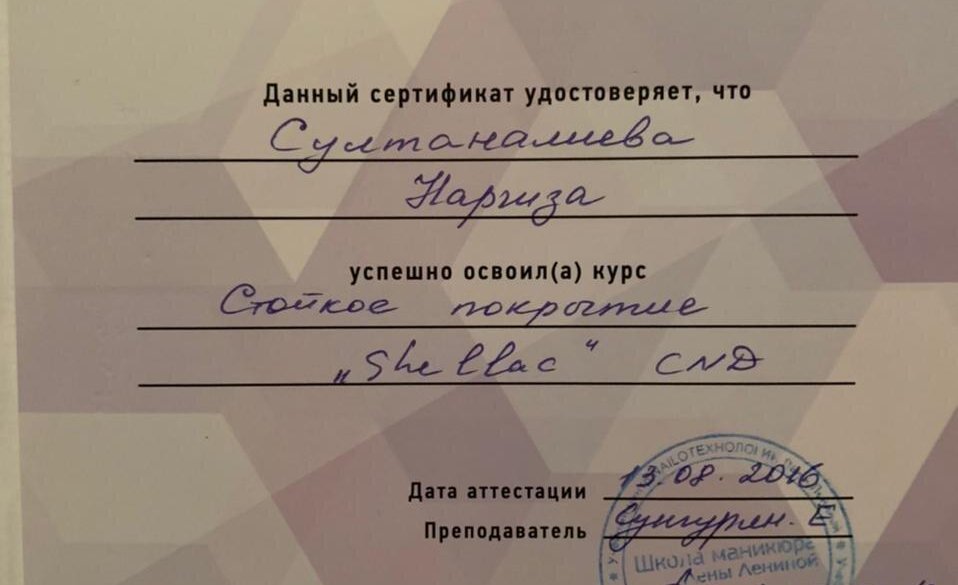 Данный сертификат удостоверяет, что
Султаналиева
Наргиза
успешно освоил(а) курс
Стойкое покрытие
„Shellac“ CND
Дата аттестации 13.08.2016
Преподаватель Е
Школа маникюра
Лены Лениной